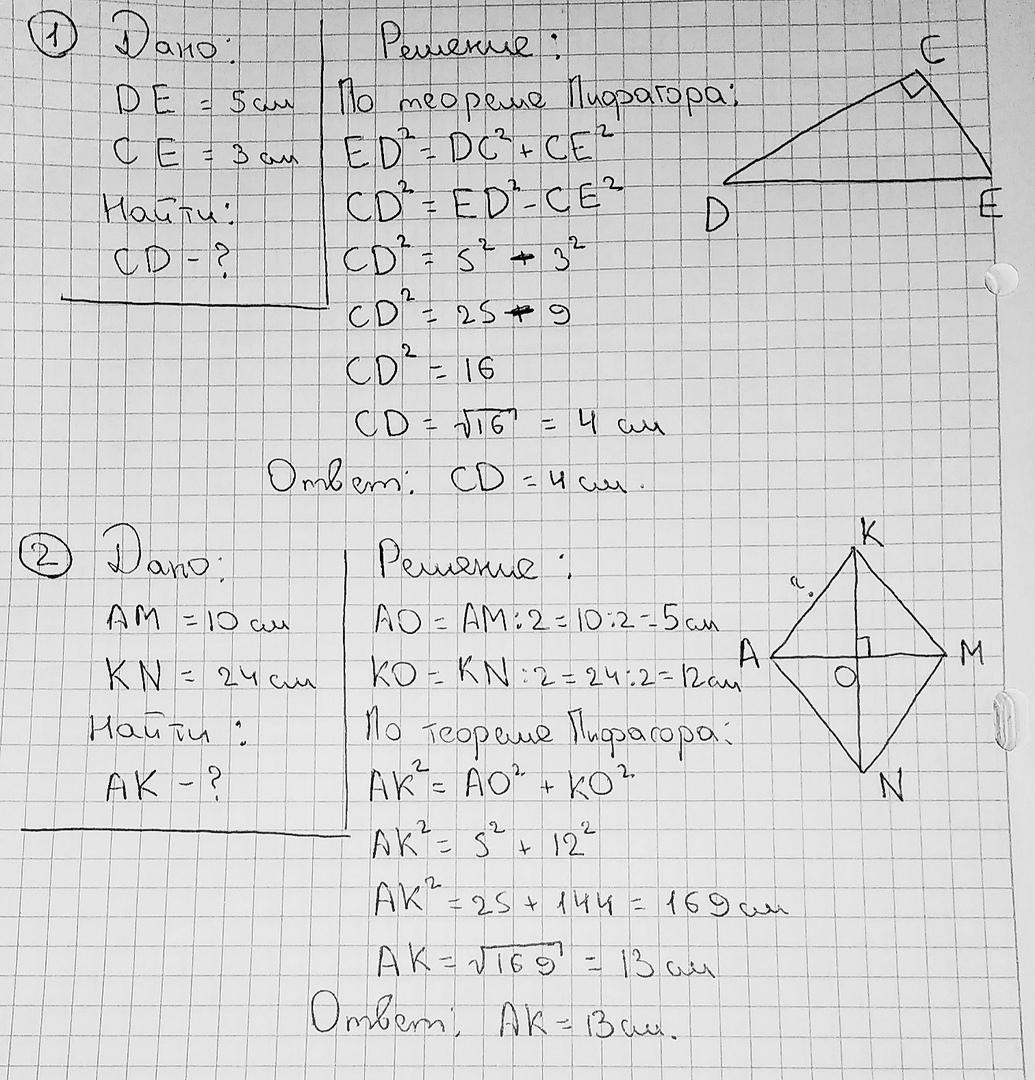 1 Дано:
DE = 5 см
CE = 3 см
Найти:
CD - ?
Решение:
По теореме Пифрагора:
ED² = DC² + CE²
CD² = ED² - CE²
CD² = 5² - 3²
CD² = 25 - 9
CD² = 16
CD = √16 = 4 см
Ответ: CD = 4 см.
C
D
E
2 Дано:
AM = 10 см
KN = 24 см
Найти:
AK - ?
Решение:
AO = AM : 2 = 10 : 2 = 5 см
KO = KN : 2 = 24 : 2 = 12 см
По теореме Пифагора:
AK² = AO² + KO²
AK² = 5² + 12²
AK² = 25 + 144 = 169 см
AK = √169 = 13 см
Ответ: AK = 13 см.
K
A
M
O
N